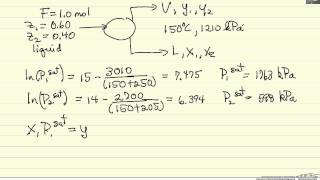 F = 1.0 mol
z₁ = 0.60
z₂ = 0.40
liquid
V, y₁, y₂
150°C, 1210 kPa
L, x₁, x₂
ln(P₁ˢᵃᵗ) = 15 - 3010/(150+250) = 7.475 P₁ˢᵃᵗ = 1763 kPa
ln(P₂ˢᵃᵗ) = 14 - 2700/(150+205) = 6.394 P₂ˢᵃᵗ = 598 kPa
x₁ P₁ˢᵃᵗ = y